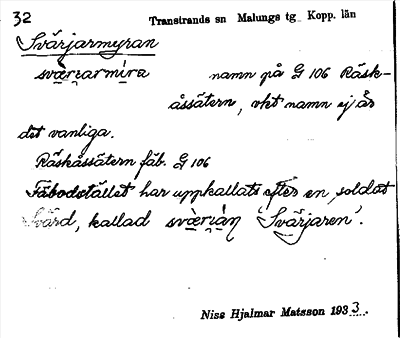 32 Transtrands sn Malungs tg Kopp. län
Svärjarmyran
sværjarmíra namn på G 106 Räsk-
åssätern, vkt namn ej är
det vanliga.
Räskåssätern fäb. G 106
Fäbodstället har uppkallats efter en soldat
Svärd, kallad 'Svärjaren'.
Niss Hjalmar Matsson 1933.